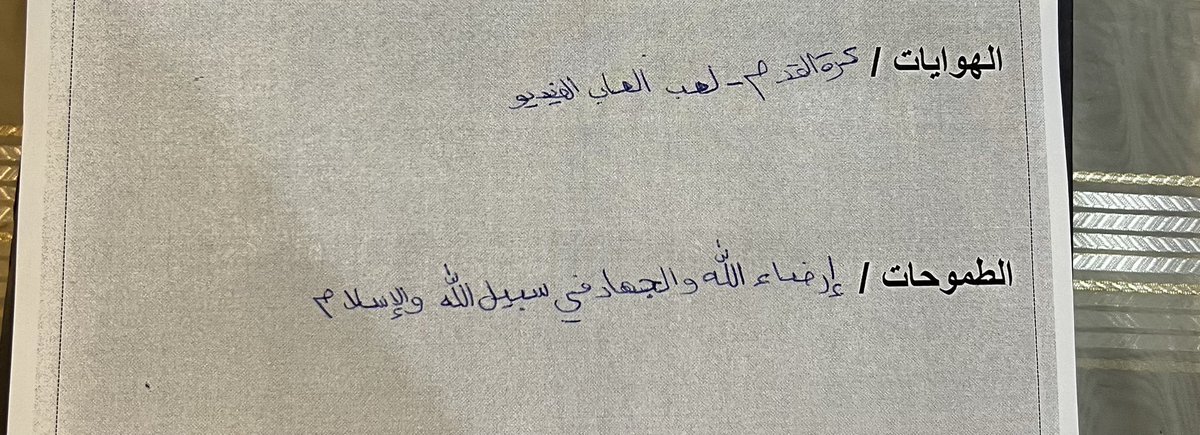 الهوايات / كرة القدم - لعب العاب الفيديو
الطموحات / إرضاء الله والجهاد في سبيل الله والإسلام